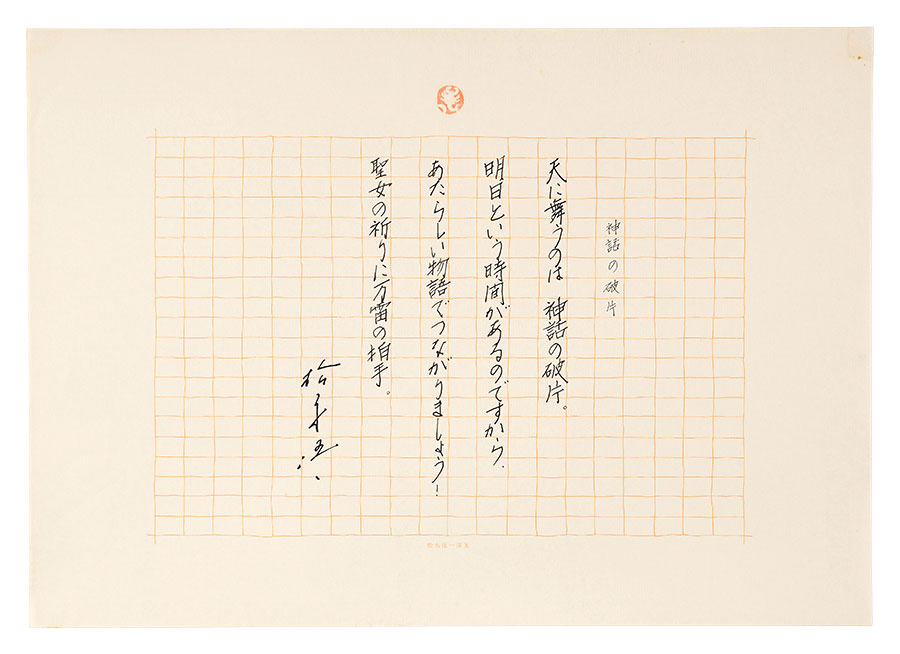 神話の破片
天に舞うのは　神話の破片。
明日という時間があるのですから、
あたらしい物語でつながりましょう！
聖女の祈りに万雷の拍手。